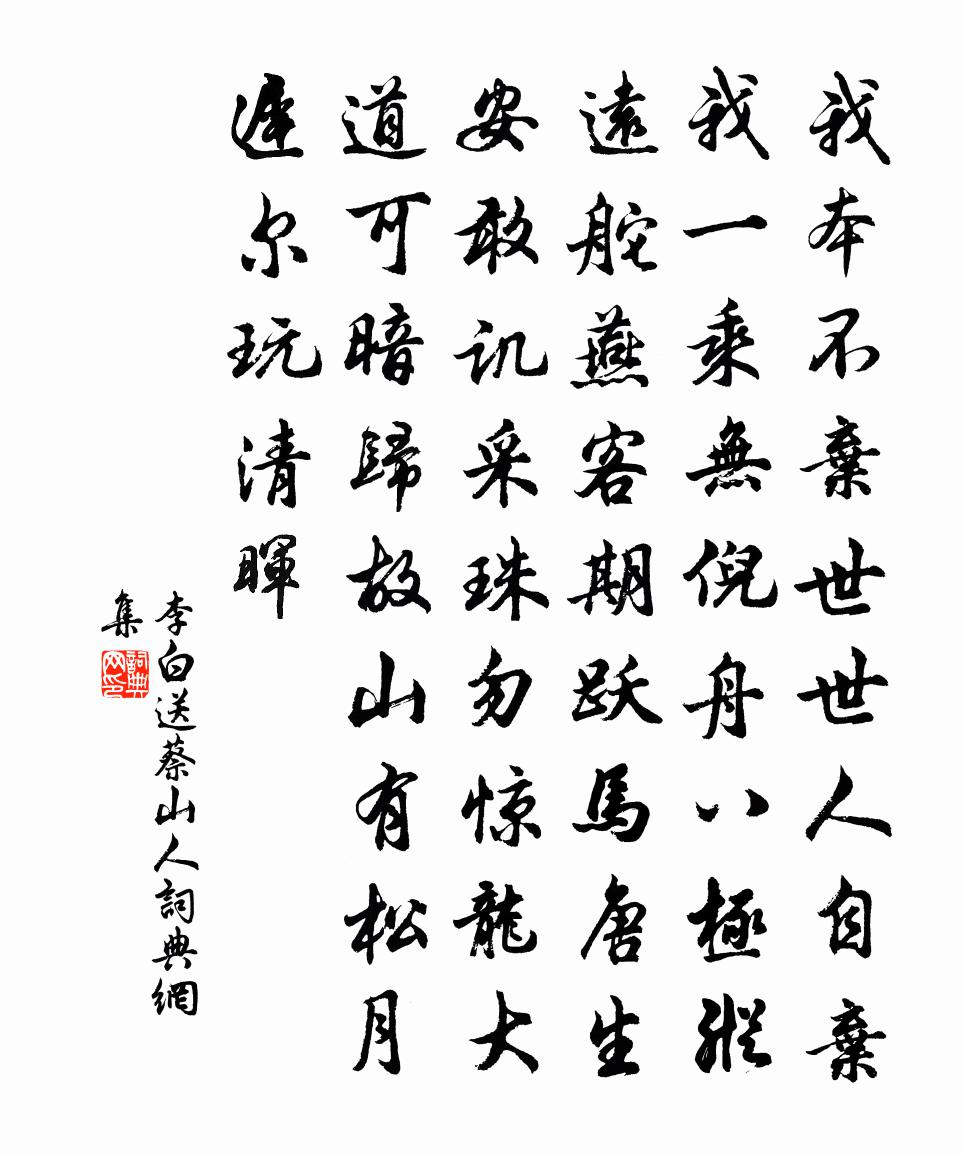 我本不棄世世人自棄
我一乘無倪舟八極縱
遠舵燕客期跃馬唐生
安敢讥采珠勿惊龍大
道可暗歸故山有松月
遲尔玩清暉
李白送蔡山人詞典網
集
詞典
网印